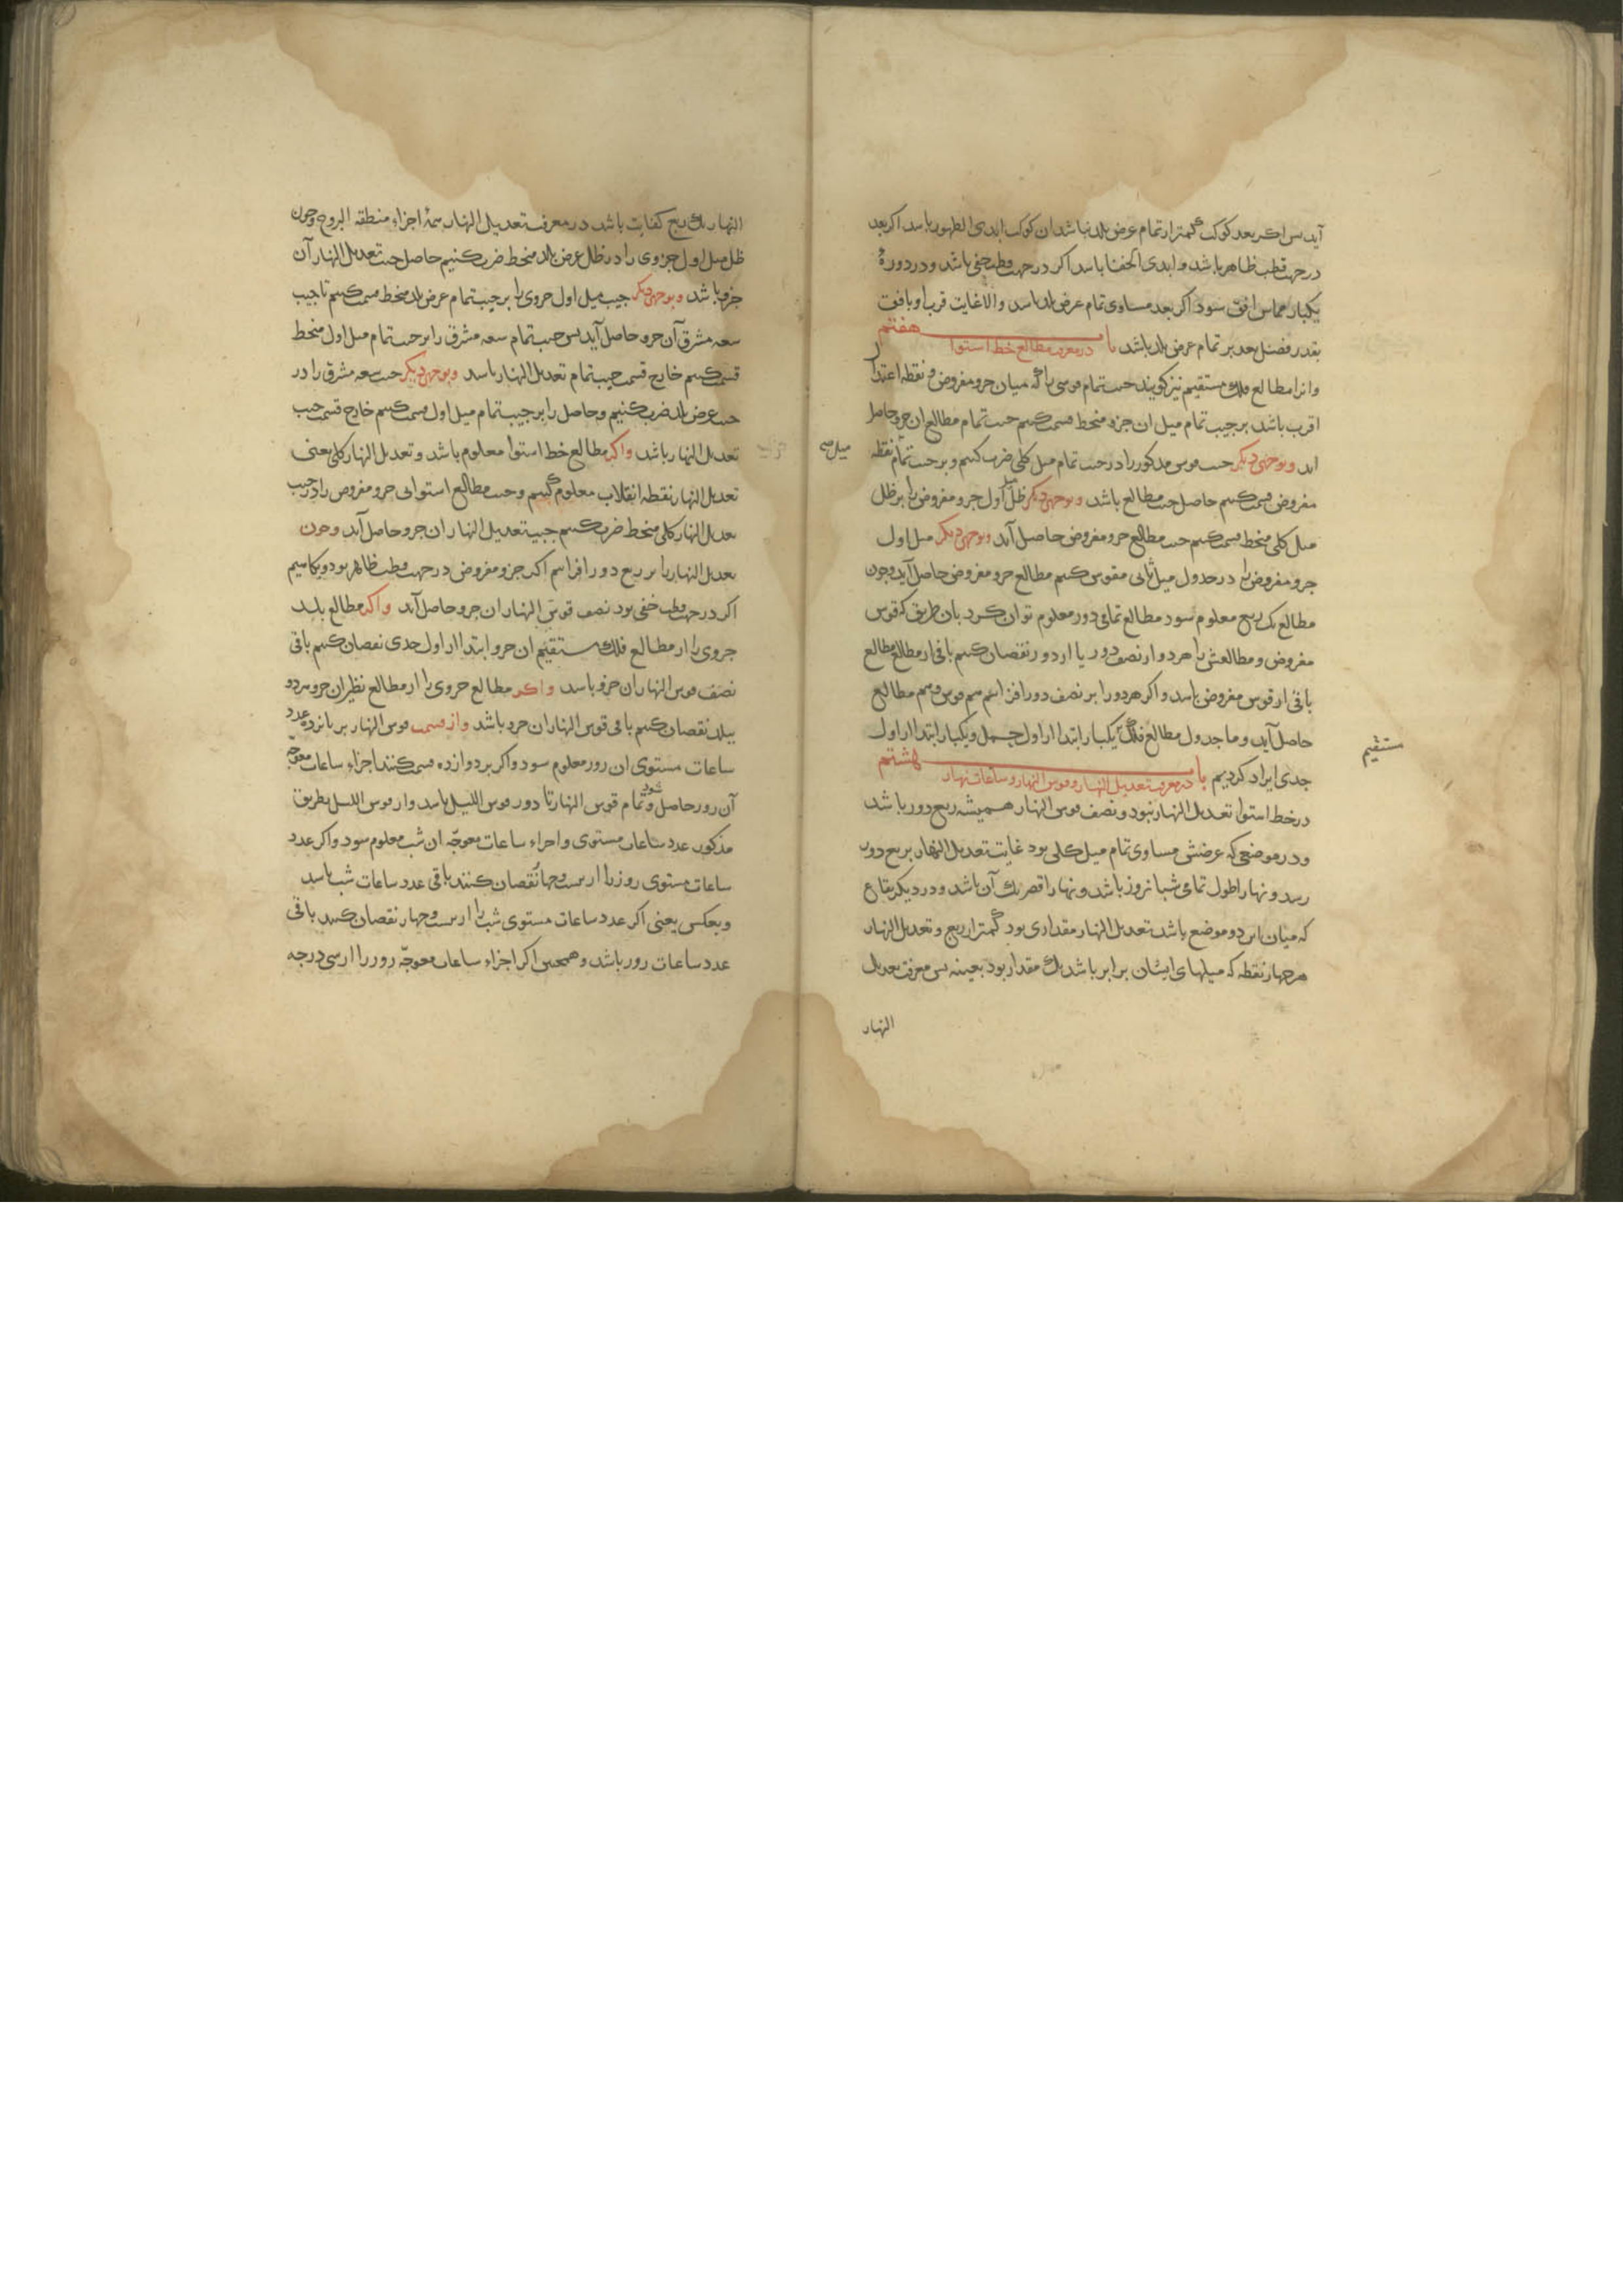 آید پس اکر بعد کوکب کمتر از تمام عرض بلد نباشد ان کوکب ابدی الظهور باشد اکر بعد
در جهت قطب ظاهر باشد و ابدی الخفا باشد اکر در جهت قطب خفی باشد و در دورهٔ
یکبار مماس افق سود اکر بعد مساوی تمام عرض بلد باشد والا غایت قرب او بافق
بقدر فضل بعد بر تمام عرض بلد باشد باب هفتم
در معرفت مطالع خط استوا
وانرا مطالع فلک مستقیم نیز کویند جیب تمام قوسی را که میان جزو مفروض و نقطه اعتدال
اقرب باشد بر جیب تمام میل ان جزو منحط قسمت کنیم جیب تمام مطالع ان جزو حاصل
اید وبوجهی دیکر جیب قوس مذکور را در جیب تمام میل کلی ضرب کنیم و بر جیب تمام نقطه
میل
مفروض قسمت کنیم حاصل جیب مطالع باشد وبوجهی دیکر ظل میل اول جزو مفروض را بر ظل
میل کلی منحط قسمت کنیم جیب مطالع جزو مفروض حاصل آید وبوجهی دیکر میل اول
جزو مفروض را در جدول میل ثانی مقوس کنیم مطالع جزو مفروض حاصل آید وچون
مطالع یک ربع معلوم سود مطالع تمامی دور معلوم توان کرد بان طریق که قوس
مفروض و مطالعش را هر دو از نصف دور یا از دور نقصان کنیم باقی از مطالع مطالع
باقی از قوس مفروض باشد و اکر هر دو را بر نصف دور افزاییم هم قوس و هم مطالع
حاصل آید و ما جدول مطالع فلک یکبار ابتدا از اول حمل و یکبار ابتدا از اول
مستقیم
جدی ایراد کردیم باب هشتم
در معرفت تعدیل النهار و قوس النهار و ساعات نهار
در خط استوا تعدیل النهار نبود و نصف قوس النهار همیشه ربع دور باشد
و در موضعی که عرضش مساوی تمام میل کلی بود غایت تعدیل النهار بربع دور
رسد و نهار اطول تمامی شبانروز باشد و نهار اقصر یک آن باشد و در دیکر بقاع
که میان این دو موضع باشد تعدیل النهار مقداری بود کمتر از ربع و تعدیل النهار
هر چهار نقطه که میلهای ایشان برابر باشد یک مقدار بود بعینه پس معرفت تعدیل
النهار
النهار یک ربع کفایت باشد در معرفت تعدیل النهار همهٔ اجزاء منطقه البروج وچون
ظل میل اول جزوی را در ظل عرض بلد منحط ضرب کنیم حاصل جیب تعدیل النهار آن
جزو باشد وبوجهی دیکر جیب میل اول جزوی را بر جیب تمام عرض بلد منحط قسمت کنیم تا جیب
سعه مشرق آن جزو حاصل آید پس جیب تمام سعه مشرق را بر جیب تمام میل اول منحط
قسمت کنیم خارج قسمت جیب تمام تعدیل النهار باشد وبوجهی دیکر جیب سعه مشرق را در
جیب عرض بلد ضرب کنیم و حاصل را بر جیب تمام میل اول قسمت کنیم خارج قسمت جیب
تعدیل النهار باشد واکر مطالع خط استوا معلوم باشد و تعدیل النهار کلی یعنی
تعدیل النهار نقطه انقلاب معلوم کنیم و جیب مطالع استوایی جزو مفروض را در جیب
تعدیل النهار کلی منحط ضرب کنیم جیب تعدیل النهار ان جزو حاصل آید وچون
تعدیل النهار را بر ربع دور افزاییم اکر جزو مفروض در جهت قطب ظاهر بود و بکاهیم
اکر در جهت قطب خفی بود نصف قوس النهار ان جزو حاصل آید واکر مطالع بلد
جزوی را از مطالع فلک مستقیم ان جزو ابتدا از اول جدی نقصان کنیم باقی
نصف قوس النهار ان جزو باشد واکر مطالع جزوی را از مطالع نظیر ان جزو هر دو
ببلد نقصان کنیم باقی قوس النهار ان جزو باشد واز قسمت قوس النهار بر پانزده عدد
ساعات مستوی ان روز معلوم سود و اکر بر دوازده قسمت کنند اجزاء ساعات معوجه
آن روز حاصل شود و تمام قوس النهار تا دور قوس اللیل باشد و از قوس اللیل بطریق
مذکور عدد ساعات مستوی و اجزاء ساعات معوجّه ان شب معلوم سود و اکر عدد
ساعات مستوی روز را از بیست و چهار نقصان کنند باقی عدد ساعات شب باشد
وبعکس یعنی اکر عدد ساعات مستوی شب را از بیست و چهار نقصان کنند باقی
عدد ساعات روز باشد و همچنین اکر اجزاء ساعات معوجّه روز را از سی درجه